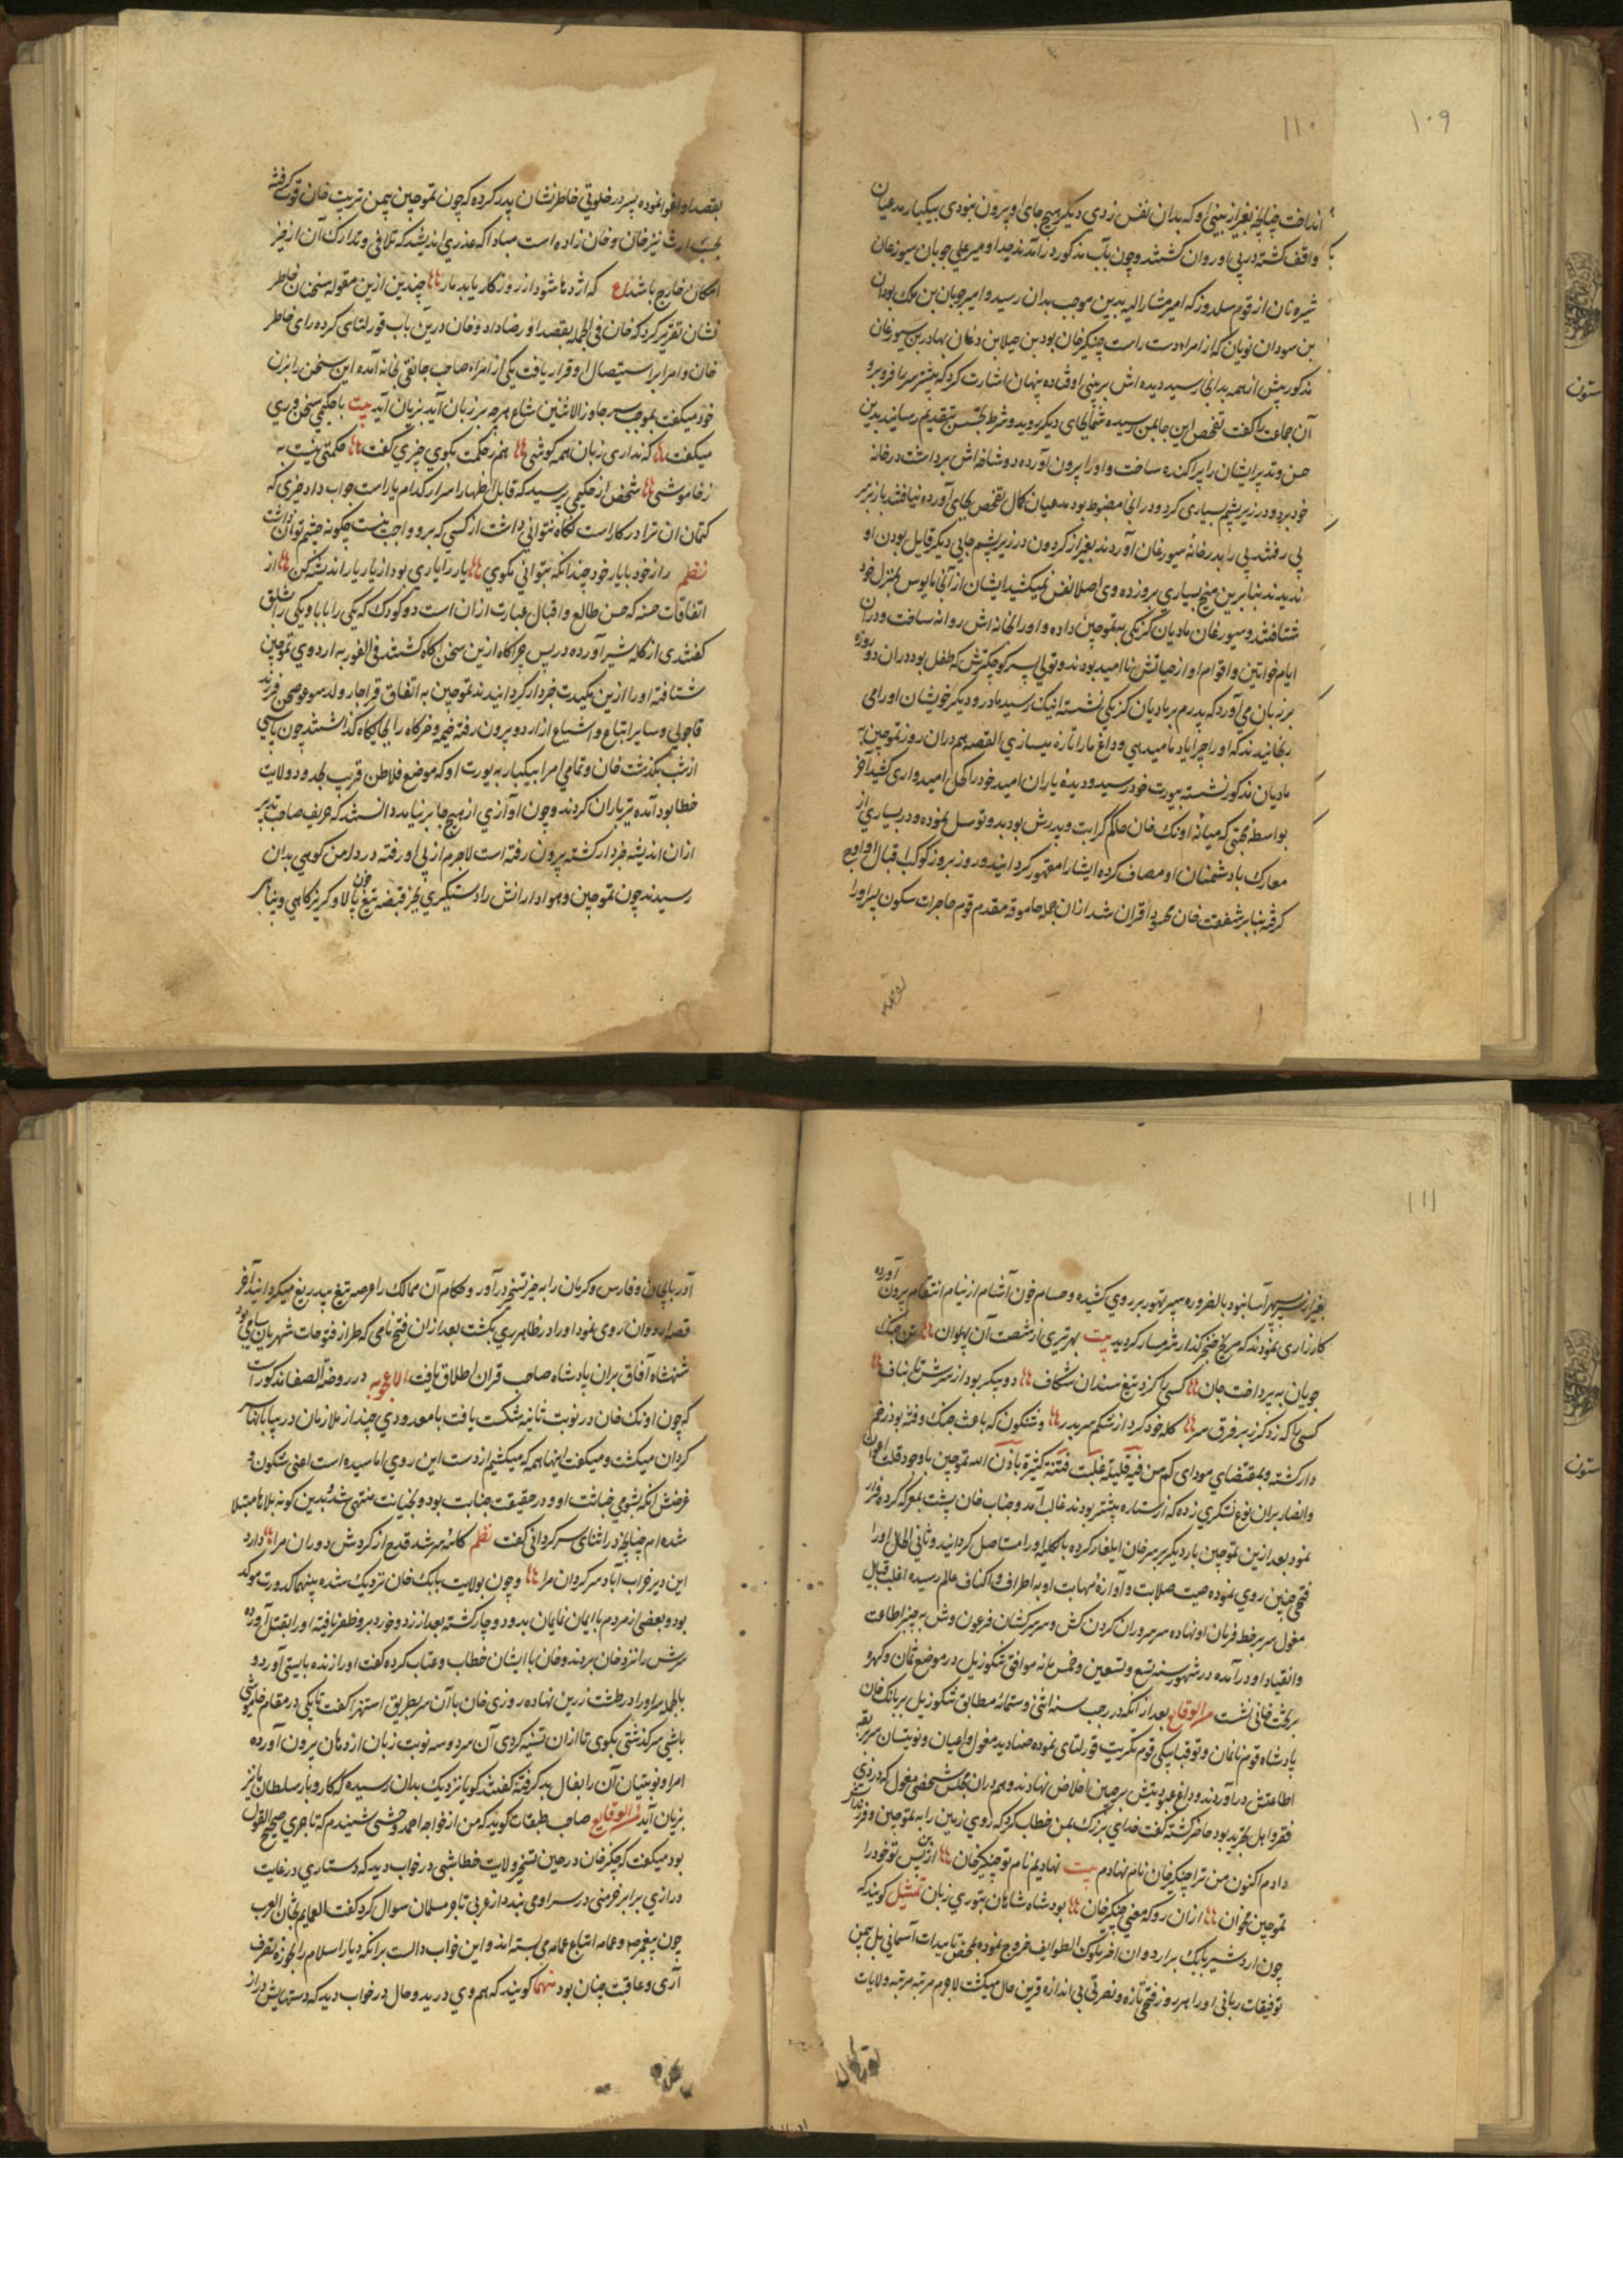 ۱۰۹
۱۱۰
انداخت چنانچه بغیر از بینی او که بدان نفس زدی دیگر هیچ جای او بیرون نبودی بیکبار مدعیان
واقف گشته در پی او روان گشتند و چون بآب مذکور درآمدند جد اومیر علی چوبان سیورغان
شیره نان از قوم سلدوز که امیر مشار الیه بدین موجب بدان رسید و امیر چوبان بن ملک بودان
بن سودان نویان که از امراء دست راست چنگیز خان بود بن جیلا بن دغان بهادر بن سیورغان
مذکور پیش از همه بدانجا رسید دیده اش بر بینی او فتاده پنهان اشارت کرد که بیشتر سر را فرو برو
آن جماعت را گفت تفحص این جا بمن رسیده شما بجای دیگر بروید و شرط جستن بتقدیم رسانید بدین
حسن و تدبیر ایشان را پراکنده ساخت و او را بیرون آورده دو شاخه اش برداشت در خانه
خود برد و در زیر پشم بسیاری کرد و در آنجا مضبوط بود مدعیان کمال تفحص بجای آورده نیافتند باز بر سر
پی رفتند پی را بدر خانه سیورغان آوردند بغیر از گردون در زیر پشم جایی دیگر قابل بودن او
ندیدند بنابرین میخ بسیاری برو زده وی اصلا نفس نمیکشید ایشان از آنجا مایوس بمنزل خود
شتافتند و سیورغان مادیان کزنکی به تموچین داده و او را بخانه اش روانه ساخت و در آن
ایام خواتین و اقوام او از حیاتش ناامید بودند و تولی پسر کوچکترش که طفل بود در آن دو روزه
بر زبان می آورد که پدرم بر مادیان کزنکی نشسته اینک رسید مادر و دیگر خویشان او را می
رنجانیدند که او را چرا یاد ما میدهی و داغ ما را تازه میسازی القصه هم در آن روز تموچین به
مادیان مذکور نشسته بیورت خود رسید و دیده یاران امید خود را کحل امیدواری کشید آخر
بواسطه محبتی که میانه اونک خان حاکم کرایت و پدرش بود بدو توسل نموده و در بسیاری از
معارک با دشمنان او مصاف کرده ایشان را مقهور گردانید و روز بروز کوکب اقبال او اوج
گرفته بنابر شفقت خان محسود اقران شد از آن جمله جاموقه مقدم قوم جاجرات سکون پسر او را
بقصد او اغوا نموده پسر در خلوتی خاطرنشان پدر کرده که چون تموچین بیمن تربیت خان قوت گرفته
بحسب ارث نیز خان و خان زاده است مبادا که عذری اندیشد که تلافی و تدارک آن از حیز
امکان خارج باشد ع که اژدها شود ار روزگار یابد مار ؞ چندین ازین مقوله سخنان خاطر
نشان تقریر کرد که خان فی الجمله بقصد او رضا داد و خان درین باب قورلتای کرده رای خاطر
خان و امرا بر استیصال او قرار یافت یکی از امراء صاحب جانقی بخانه آمده این سخن را با زن
خود میگفت بموجب سر جاوز الاثنین شاع هر چه بر زبان آید بزیان آید بیت با حکیمی سخن وری
میگفت ؞ که نداری زبان همه گوشی ؞ هم ز حکمت بگوی چیزی گفت ؞ حکمتی نیست به
ز خاموشی ؞ شخص از حکیمی پرسید که قابل اظهار اسرار کدام یار است جواب داد چیزی که
کتمان آن ترا در کار است نگاه نتوانی داشت از کسی که برو واجب نیست چگونه چشم توان داشت
نظم راز خود با یار خود چندانکه بتوانی مگوی ؞ یار را یاری بود از یار یار اندیشه کن ؞ از
اتفاقات حسنه که حسن طالع و اقبال عبارت از آن است دو کودک که یکی را بابا و یکی را قشلق
گفتندی از گله شیر آورده در پس خرگاه ازین سخن آگاه گشتند فی الفور به اردوی تموچین
شتافته او را ازین مکیدت خبردار گردانیدند تموچین به اتفاق قراجار ولد سوغوجیچن فرزند
قاجولی و سایر اتباع و اشیاع از اردو بیرون رفته خیمه و خرگاه را بجایگاه گذاشتند چون پاسی
از شب بگذشت خان و تمامی امرا بیکبار به یورت او که موضع فلاطن قریب بحدود ولایت
خطا بود آمده تیرباران کردند و چون آوازی از هیچ جا برنیامد دانستند که حریف صاحب تدبیر
از آن اندیشه خبردار گشته بیرون رفته است لاجرم از پی او رفته در دامن کوهی بدان
رسیدند چون تموچین و هوادارانش را دستگیری بجز قبضه تیغ خون پالا و گریزگاهی و پناهی
۱۱۱
بغیر از سپر سپهر آسا نبود بالضروره سپر تهور بر روی کشیده و حسام خون آشام از نیام انتقام بیرون آورده
کارزاری نمودند که مریخ خنجر گذار شرمسار گردید بیت بهر تیری از شصت آن پهلوان ؞ تن جنگ
جویان بپرداخت جان ؞ کسی را که زد تیغ سندان شکاف ؞ دو پیکر بود از سرش تا بناف ؞
کسی را که زد گرز بر فرق سر ؞ کله خود کرد از شکم سر بدر ؞ و شنکون که باعث جنگ و فتنه بود زخم
دار گشته و بمقتضای مودای کم من فئة قلیلة غلبت فئة کثیرة باذن الله تموچین با وجود قلت اعوان
و انصار بر آن نوع لشکری زده که از ستاره بیشتر بودند غالب آمد و جناب خان پشت بمعرکه کرده فرار
نمود بعد ازین تموچین بار دیگر بر سر خان ایلغار کرده بالکلیه او را مستاصل گردانید و ثانی الحال او را
فتحی چنین روی نموده صیت صلابت و آوازه مهابت او به اطراف و اکناف عالم رسیده اغلب قبایل
مغول سر بر خط فرمان او نهاده سرسروران گردن کش و سرکشان فرعون وش به چنبر اطاعت
و انقیاد او درآمده در شهور سنه تسع و تسعین و خمس مائه موافق تنکوزییل در موضع نمان و کهرو
بر تخت خانی نشست من الوقایع بعد از آنکه در رجب سنه اثنی و ستمائه مطابق تنکوزییل بر بایانک خان
پادشاه قوم نایمان و توقتابیکی قوم مکریت قورلتای نموده صنادید مغول و اعیان و نویینان سر بربقه
اطاعتش درآوردند و داغ عبودیتش بر جبین اخلاص نهادند و هم در آن مجلس شخصی مغول که در زی
فقر و اهل تجرید بود حاضر گشته گفت خدای بزرگ بمن خطاب کرد که روی زمین را به تموچین و فرزندانش
دادم اکنون من ترا چنگیز خان نام نهادم بیت نهادیم نام تو چنگیز خان ؞ ازین پس تو خود را
تموچین مخوان ؞ از آن رو که معنی چنگیز خان ؞ بود شاه شاهان بتوری زبان تمثیل گویند که
چون اردشیر بابک بر اردوان آخر ملوک الطوایف خروج نموده بمحض تاییدات آسمانی بل بیمن
توفیقات ربانی او را هر روز فتحی تازه و نصرتی بی اندازه قرین حال میگشت لاجرم مرتبه مرتبه ولایات
آذربایجان و فارس و کرمان را به حیز تسخیر درآورد و حکام آن ممالک را عرصه تیغ بیدریغ میگردانید آخر
قصد اردوان روی نمود او را در ظاهر ری بکشت بعد از آن فتح نامی که طراز فتوحات شهریاران سامی بود
شهنشاه آفاق بر آن پادشاه صاحب قران اطلاق یافت الاعجوبه در روضة الصفا مذکور است
که چون اونک خان در نوبت ثانیه شکست یافت با معدودی چند از ملازمان در بیابانها سر
گردان میگشت و میگفت اینها همه که میکشیم از دست این روی اما سیده است اعنی شنکون و
غرضش آنکه بشومی خباثت او و در حقیقت جنایت بود و بخیانت منتهی شد بدین گونه بلاها مبتلا
شده ام چنانچه در اثنای سرگردانی گفت نظم کاسه سر شد قدح از گردش دوران مرا ؞ دارد
این دیر خراب آباد سرگردان مرا ؞ و چون بولایت بایانک خان نزدیک شده بینهما کدورت موکد
بود و بعضی از مردم با ایمان نایمان بدو دوچار گشته بعد از زد و خورد برو ظفر یافته او را بقتل آورده
سرش را نزد خان بردند و خان با ایشان خطاب و عتاب کرده گفت او را زنده بایستی آورد و
بالجمله سر او را در طشت زرین نهاده روزی خان با آن سر بطریق استهزا گفت تا کی در مقام خاموشی
باشی سرگذشتی بگوی تا از آن تنبیه گردی آن سر دو سه نوبت زبان از دهان بیرون آورده
امرا و نویینان آن را بفال بد گرفته گفتند گویا نزدیک بدان رسیده که کار و بار سلطان ما نیز
بزیان آید من الوقایع صاحب طبقات گوید که من از خواجه احمد وحشی شنیدم که تاجری صحیح القول
بود میگفت که چنگیز خان در حین تسخیر ولایت خطا شبی در خواب دید که دستاری در غایت
درازی برابر خرمنی در سر او می بندد از عربی تاجر مسلمان سوال کرد گفت العمایم تیجان العرب
چون پیغمبر ما و عامه اتباع عمامه می بسته اند و این خواب دالست بر آنکه دیار اسلام را بحوزه تصرف
آری و عاقبت چنان بود منهما گویند که هم وی در بدو حال در خواب دید که دستهایش دراز
ستون
ستون